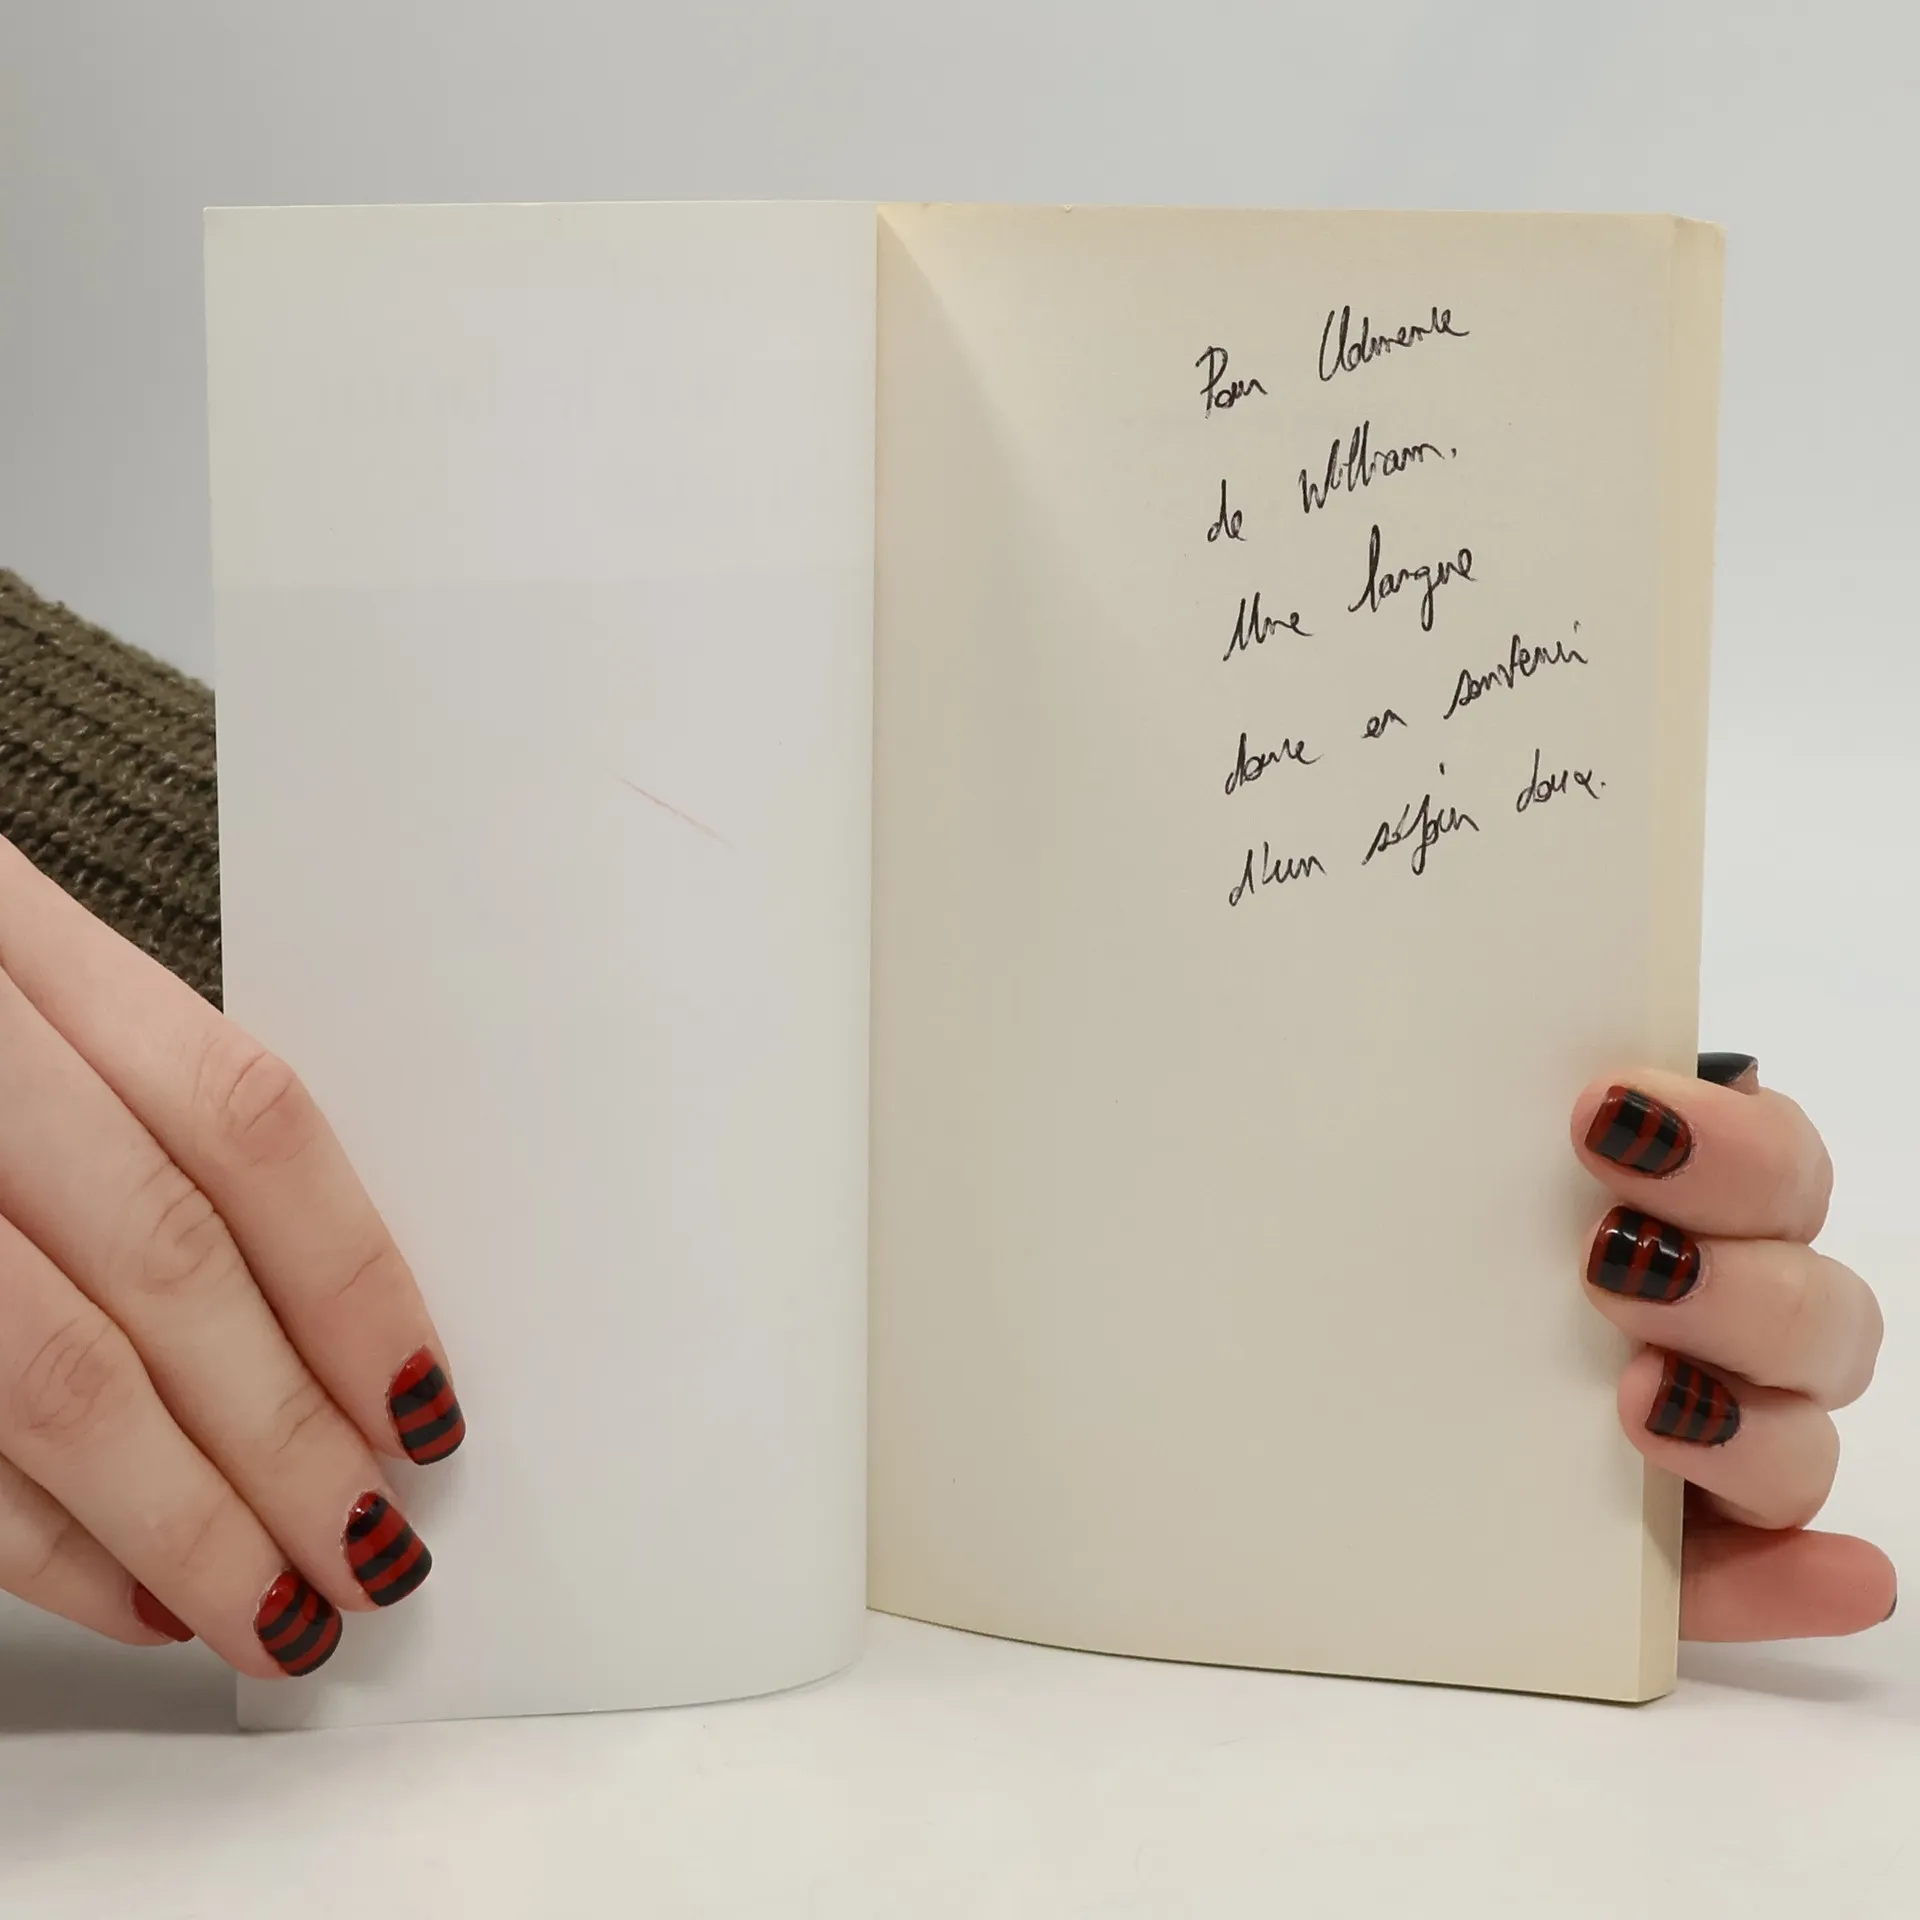 Pour
de William.
Une langue
douce en souvenir
d'un séjour doux.